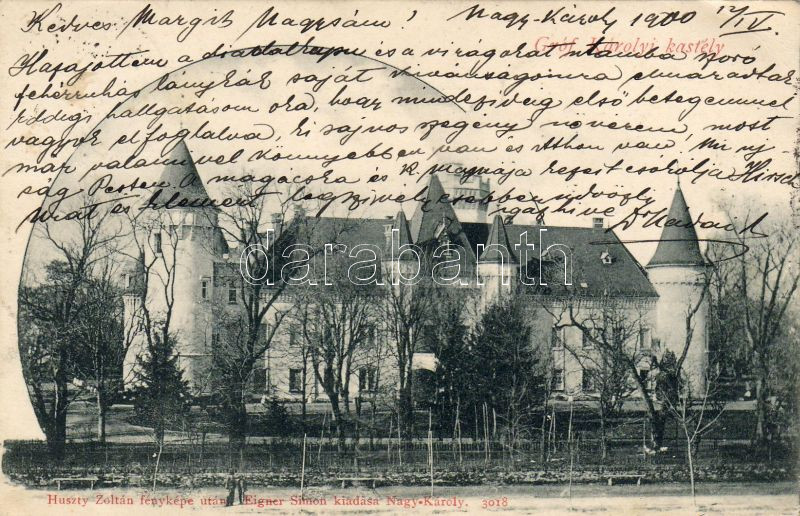 Kedves Margit Nagysám! Nagy-Károly 1900 12/IV.
Gróf Károlyi kastély
Hafajottem a és a virágokat utamba szoró
fehérruhás lánykák saját kivánságomra elmaradtak
eddigi hallgatásom oka, hogy mindez ideig első betegemmel
vagyok elfoglalva, ki sajnos szegény neverem, most
már valamivel könnyebben van és itthon van, Mi uj
ság Pesten. A magácska és K. mamája kezeit csókolja
Miat és Klement legszívélyesebben üdvözli
igaz hive Dr
darabanth
Huszty Zoltán fényképe után. Eigner Simon kiadása Nagy-Károly. 3018